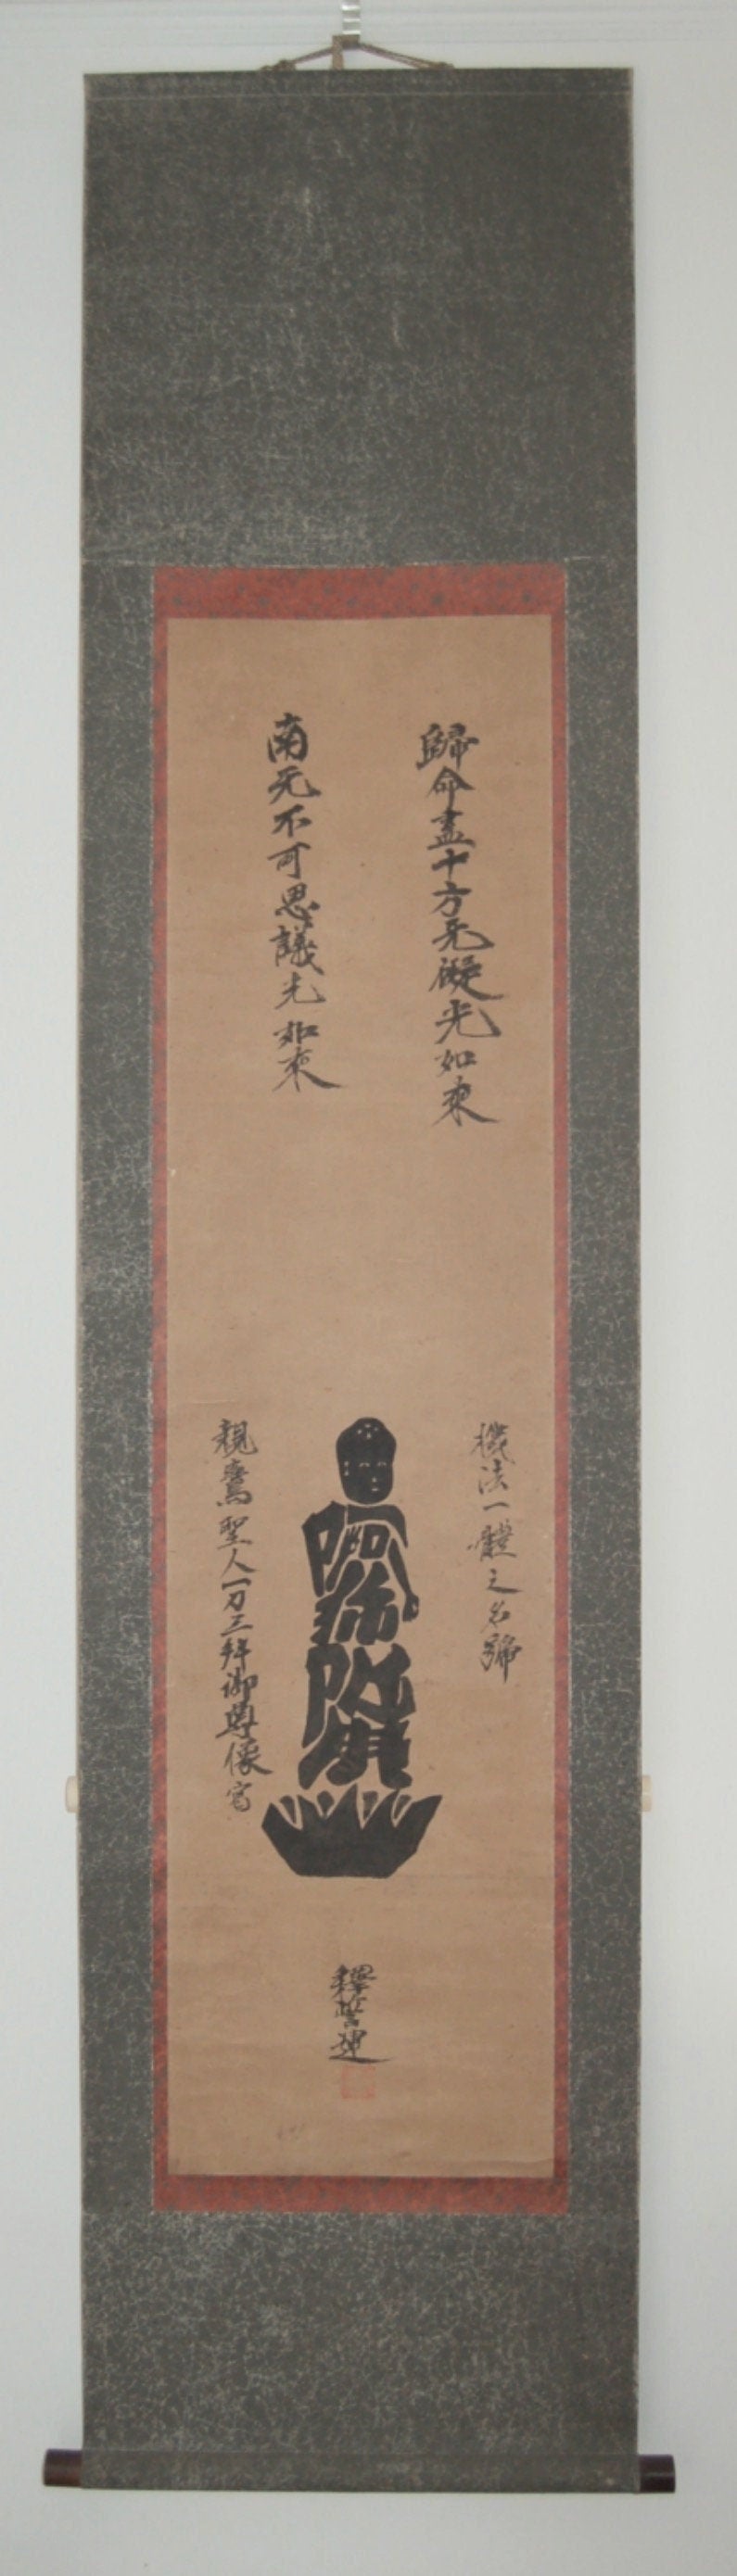 歸命盡十方无礙光如來
南无不可思議光如來
機法一體之名號
親鸞聖人一刀三拜御尊像寫
釋誓運